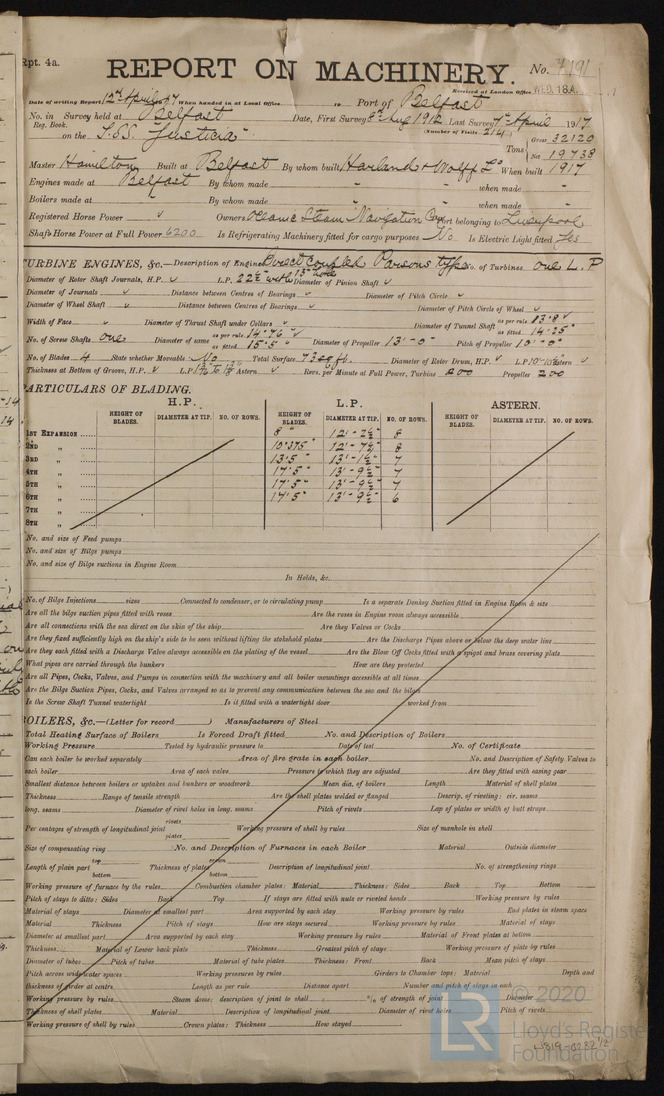 Rpt. 4a.
REPORT ON MACHINERY. No. 7191
Received at London Office WED. 18 A
Date of writing Report 12th April 17 When handed in at Local Office Port of Belfast
No. in Survey held at Belfast Date, First Survey 8th Aug 1912 Last Survey 7th April 1917
Reg. Book. (Number of Visits 214)
on the S.S. "Justicia" Tons Gross 32120 Net 19738
Master Hamilton Built at Belfast By whom built Harland & Wolff Ld When built 1917
Engines made at Belfast By whom made " " when made "
Boilers made at " By whom made " " when made "
Registered Horse Power Owners Oceanic Steam Navigation Coy Port belonging to Liverpool
Shaft Horse Power at Full Power 6200 Is Refrigerating Machinery fitted for cargo purposes No Is Electric Light fitted Yes
TURBINE ENGINES, &c.—Description of Engines Direct coupled Parsons type No. of Turbines one L.P
Diameter of Rotor Shaft Journals, H.P. L.P. 22½" with 13" hole Diameter of Pinion Shaft
Diameter of Journals Distance between Centres of Bearings Diameter of Pitch Circle
Diameter of Wheel Shaft Distance between Centres of Bearings Diameter of Pitch Circle of Wheel
Width of Face Diameter of Thrust Shaft under Collars Diameter of Tunnel Shaft as per rule 13.8" as fitted 14.25"
No. of Screw Shafts one Diameter of same as per rule 14.76" as fitted 15.5" Diameter of Propeller 13'-0" Pitch of Propeller 10'-0"
No. of Blades 4 State whether Moveable No Total Surface 73 sq ft. Diameter of Rotor Drum, H.P. L.P. 10'-10½" Astern
Thickness at Bottom of Groove, H.P. L.P. Astern Revs. per Minute at Full Power, Turbine 200 Propeller 200
PARTICULARS OF BLADING.
H.P. L.P. ASTERN.
HEIGHT OF BLADES. DIAMETER AT TIP. NO. OF ROWS. HEIGHT OF BLADES. DIAMETER AT TIP. NO. OF ROWS. HEIGHT OF BLADES. DIAMETER AT TIP. NO. OF ROWS.
1ST EXPANSION 8" 12'-2½" 8
2ND " 10.375" 12'-7¼" 8
3RD " 13.5" 13'-1½" 7
4TH " 17.5" 13'-9½" 7
5TH " 17.5" 13'-9½" 7
6TH " 17.5" 13'-9½" 6
7TH "
8TH "
No. and size of Feed pumps
No. and size of Bilge pumps
No. and size of Bilge suctions in Engine Room
In Holds, &c.
No. of Bilge Injections sizes Connected to condenser, or to circulating pump Is a separate Donkey Suction fitted in Engine Room & size
Are all the bilge suction pipes fitted with roses Are the roses in Engine room always accessible
Are all connections with the sea direct on the skin of the ship Are they Valves or Cocks
Are they fixed sufficiently high on the ship's side to be seen without lifting the stokehold plates Are the Discharge Pipes above or below the deep water line
Are they each fitted with a Discharge Valve always accessible on the plating of the vessel Are the Blow Off Cocks fitted with a spigot and brass covering plate
What pipes are carried through the bunkers How are they protected
Are all Pipes, Cocks, Valves, and Pumps in connection with the machinery and all boiler mountings accessible at all times
Are the Bilge Suction Pipes, Cocks, and Valves arranged so as to prevent any communication between the sea and the bilges
Is the Screw Shaft Tunnel watertight Is it fitted with a watertight door worked from
BOILERS, &c.—(Letter for record ) Manufacturers of Steel
Total Heating Surface of Boilers Is Forced Draft fitted No. and Description of Boilers
Working Pressure Tested by hydraulic pressure to Date of test No. of Certificate
Can each boiler be worked separately Area of fire grate in each boiler No. and Description of Safety Valves to
each boiler Area of each valve Pressure to which they are adjusted Are they fitted with easing gear
Smallest distance between boilers or uptakes and bunkers or woodwork Mean dia. of boilers Length Material of shell plates
Thickness Range of tensile strength Are the shell plates welded or flanged Descrip. of riveting: cir. seams
long. seams Diameter of rivet holes in long. seams Pitch of rivets Lap of plates or width of butt straps
Per centages of strength of longitudinal joint rivets plates Working pressure of shell by rules Size of manhole in shell
Size of compensating ring No. and Description of Furnaces in each Boiler Material Outside diameter
Length of plain part top bottom Thickness of plates crown bottom Description of longitudinal joint No. of strengthening rings
Working pressure of furnace by the rules Combustion chamber plates: Material Thickness: Sides Back Top Bottom
Pitch of stays to ditto: Sides Back Top If stays are fitted with nuts or riveted heads Working pressure by rules
Material of stays Diameter at smallest part Area supported by each stay Working pressure by rules End plates in steam space
Material Thickness Pitch of stays How are stays secured Working pressure by rules Material of stays
Diameter at smallest part Area supported by each stay Working pressure by rules Material of Front plates at bottom
Thickness Material of Lower back plate Thickness Greatest pitch of stays Working pressure of plate by rules
Diameter of tubes Pitch of tubes Material of tube plates Thickness: Front Back Mean pitch of stays
Pitch across wide water spaces Working pressures by rules Girders to Chamber tops: Material Depth and
thickness of girder at centre Length as per rule Distance apart Number and pitch of stays in each
Working pressure by rules Steam dome: description of joint to shell % of strength of joint Diameter
Thickness of shell plates Material Description of longitudinal joint Diameter of rivet holes Pitch of rivets
Working pressure of shell by rules Crown plates: Thickness How stayed
LR © 2020
Lloyd's Register
Foundation
W819-0282 1/2